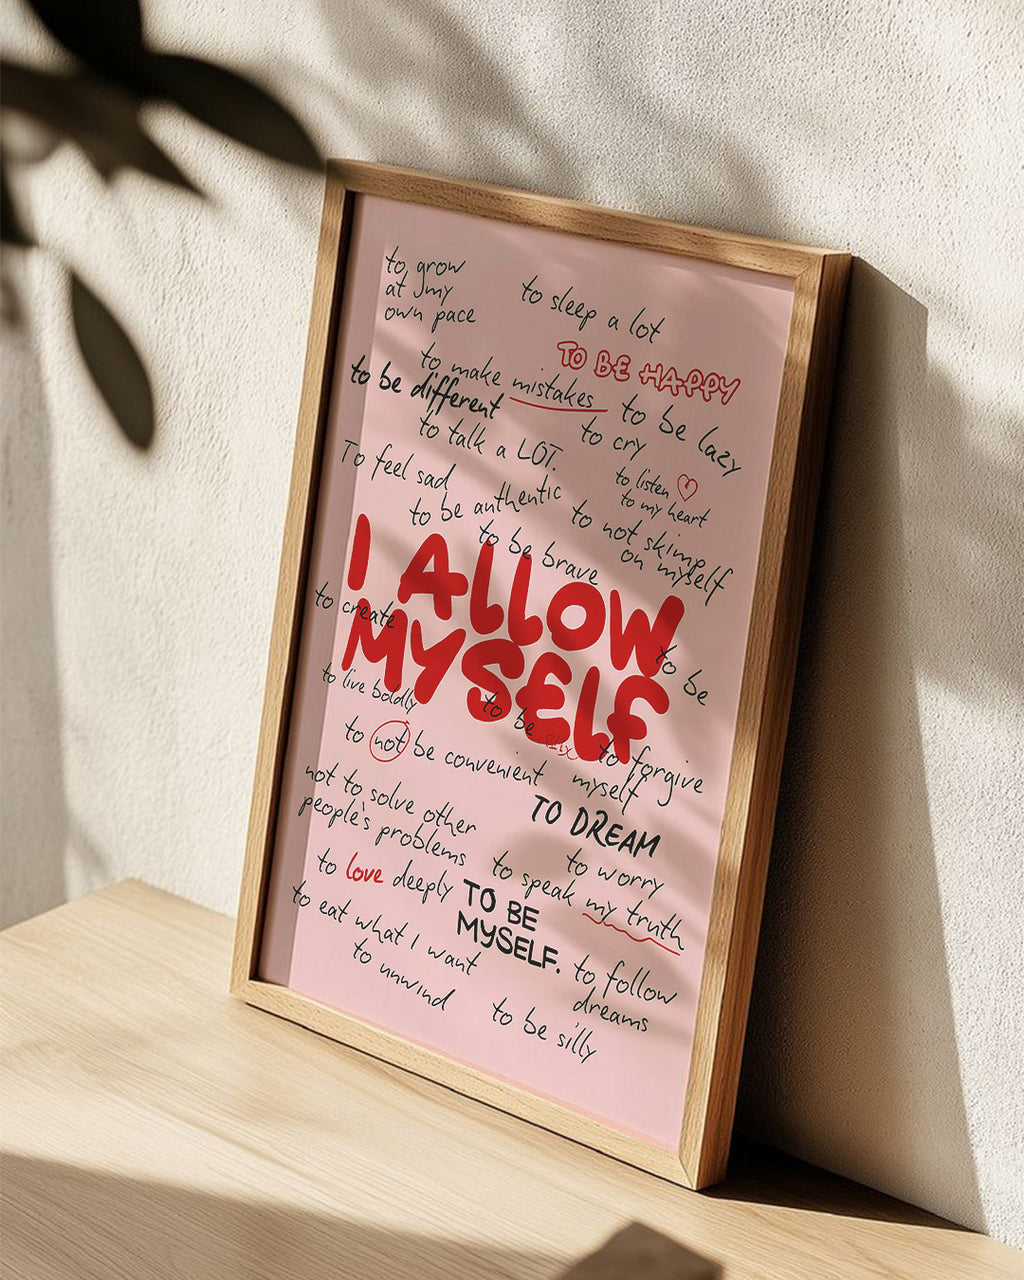 to grow
at my
own pace
to sleep a lot
TO BE HAPPY
to make mistakes
to be different
to be lazy
to cry
to talk a LOT.
To feel sad
to listen
to my heart
to be authentic
to not skimp
on myself
to be brave
I ALLOW
MYSELF
to create
to be
to live boldly
to be
to forgive
myself
to not be convenient
not to solve other
people's problems
TO DREAM
to worry
to speak my truth
to love deeply
TO BE
MYSELF.
to eat what I want
to unwind
to follow
dreams
to be silly